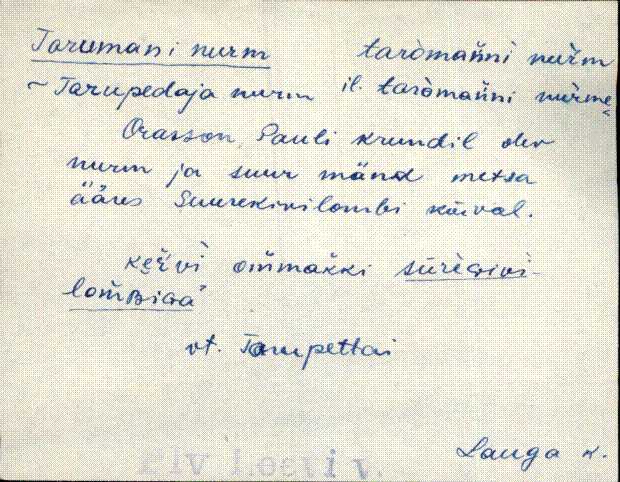 Tarumani nurm   taròman̆ni nur̆m
~ Tarupedaja nurm   il. taròman̆ni nŭrme
Orasson, Pauli krundil olev
nurm ja suur mänd metsa
ääres Suurekivilombi kõrval.
om̆mak̆ki sūrèGivi-
lom̆BiGa’
vt. Tarupettai
Lauga k.